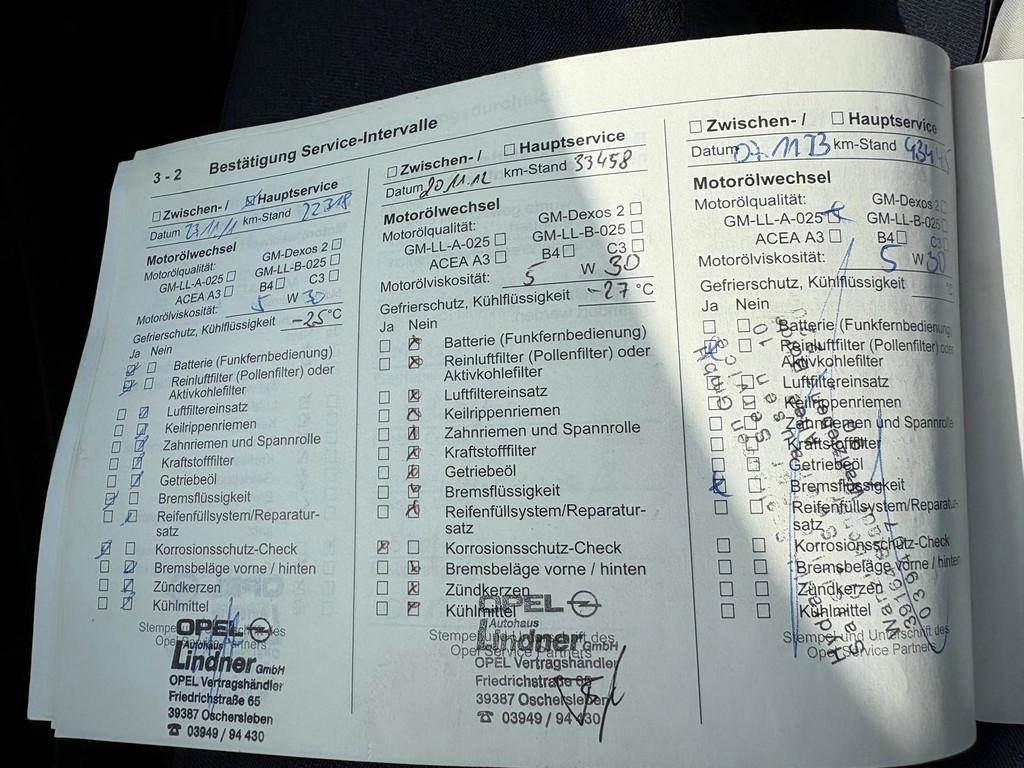 3 - 2 Bestätigung Service-Intervalle
☐ Zwischen- / ☑ Hauptservice
Datum 23.11.11 km-Stand 22318
Motorölwechsel
Motorölqualität: GM-Dexos 2 ☐
GM-LL-A-025 ☐ GM-LL-B-025 ☐
ACEA A3 ☐ B4 ☐ C3 ☐
Motorölviskosität: 5 W 30
Gefrierschutz, Kühlflüssigkeit -25 °C
Ja Nein
Batterie (Funkfernbedienung)
Reinluftfilter (Pollenfilter) oder
Aktivkohlefilter
Luftfiltereinsatz
Keilrippenriemen
Zahnriemen und Spannrolle
Kraftstofffilter
Getriebeöl
Bremsflüssigkeit
Reifenfüllsystem/Reparatur-
satz
Korrosionsschutz-Check
Bremsbeläge vorne / hinten
Zündkerzen
Kühlmittel
OPEL
Autohaus
Lindner GmbH
OPEL Vertragshändler
Friedrichstraße 65
39387 Oschersleben
☎ 03949 / 94 430
☐ Zwischen- / ☐ Hauptservice
Datum 20.11.12 km-Stand 33458
Motorölwechsel
Motorölqualität: GM-Dexos 2 ☐
GM-LL-A-025 ☐ GM-LL-B-025 ☐
ACEA A3 ☐ B4 ☐ C3 ☐
Motorölviskosität: 5 W 30
Gefrierschutz, Kühlflüssigkeit -27 °C
Ja Nein
Batterie (Funkfernbedienung)
Reinluftfilter (Pollenfilter) oder
Aktivkohlefilter
Luftfiltereinsatz
Keilrippenriemen
Zahnriemen und Spannrolle
Kraftstofffilter
Getriebeöl
Bremsflüssigkeit
Reifenfüllsystem/Reparatur-
satz
Korrosionsschutz-Check
Bremsbeläge vorne / hinten
Zündkerzen
Kühlmittel
Stempel und Unterschrift des
Opel Service Partners
OPEL
Autohaus
Lindner GmbH
OPEL Vertragshändler
Friedrichstraße
39387 Oschersleben
☎ 03949 / 94 430
☐ Zwischen- / ☐ Hauptservice
Datum 07.11.13 km-Stand
Motorölwechsel
Motorölqualität: GM-Dexos 2
GM-LL-A-025 GM-LL-B-025
ACEA A3 ☐ B4 ☐ C3
Motorölviskosität: 5 W 30
Gefrierschutz, Kühlflüssigkeit
Ja Nein
Batterie (Funkfernbedienung)
Reinluftfilter (Pollenfilter) oder
Aktivkohlefilter
Luftfiltereinsatz
Keilrippenriemen
Zahnriemen und Spannrolle
Kraftstofffilter
Getriebeöl
Bremsflüssigkeit
Reifenfüllsystem/Reparatur-
satz
Korrosionsschutz-Check
Bremsbeläge vorne / hinten
Zündkerzen
Kühlmittel
Stempel und Unterschrift des
Opel Service Partners